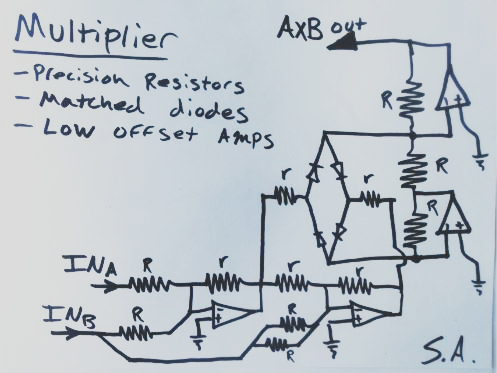 Multiplier
- Precision Resistors
- Matched diodes
- Low Offset Amps
AxB out
R
R
R
r
r
IN_A
R
r
r
r
IN_B
R
R
R
S.A.